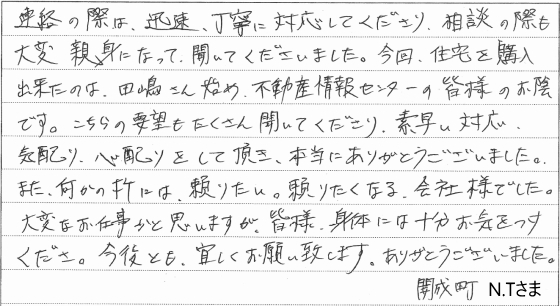 連絡の際は、迅速、丁寧に対応してくださり、相談の際も
大変親身になって、聞いてくださいました。今回、住宅を購入
出来たのは、田嶋さん始め、不動産情報センターの皆様のお陰
です。こちらの要望もたくさん聞いてくださり、素早い対応、
気配り、心配りをして頂き、本当にありがとうございました。
また、何かの折には、頼りたい。頼りたくなる、会社様でした。
大変なお仕事かと思いますが、皆様、身体には十分お気をつけ
くださ。今後とも、宜しくお願い致します。ありがとうございました。
開成町 N.Tさま